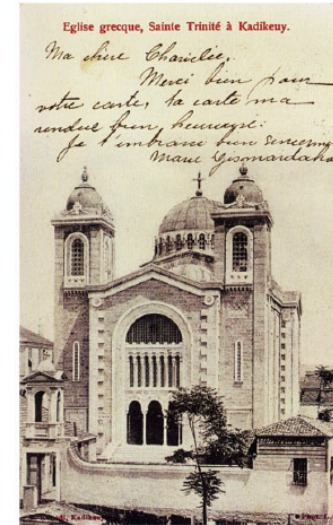 Eglise grecque, Sainte Trinité à Kadikeuy.
Ma chère Chariclée,
Merci bien pour
votre carte, ta carte ma
rendue bien heureuse.
Je t'embrasse bien
Marie
Kadikeuy